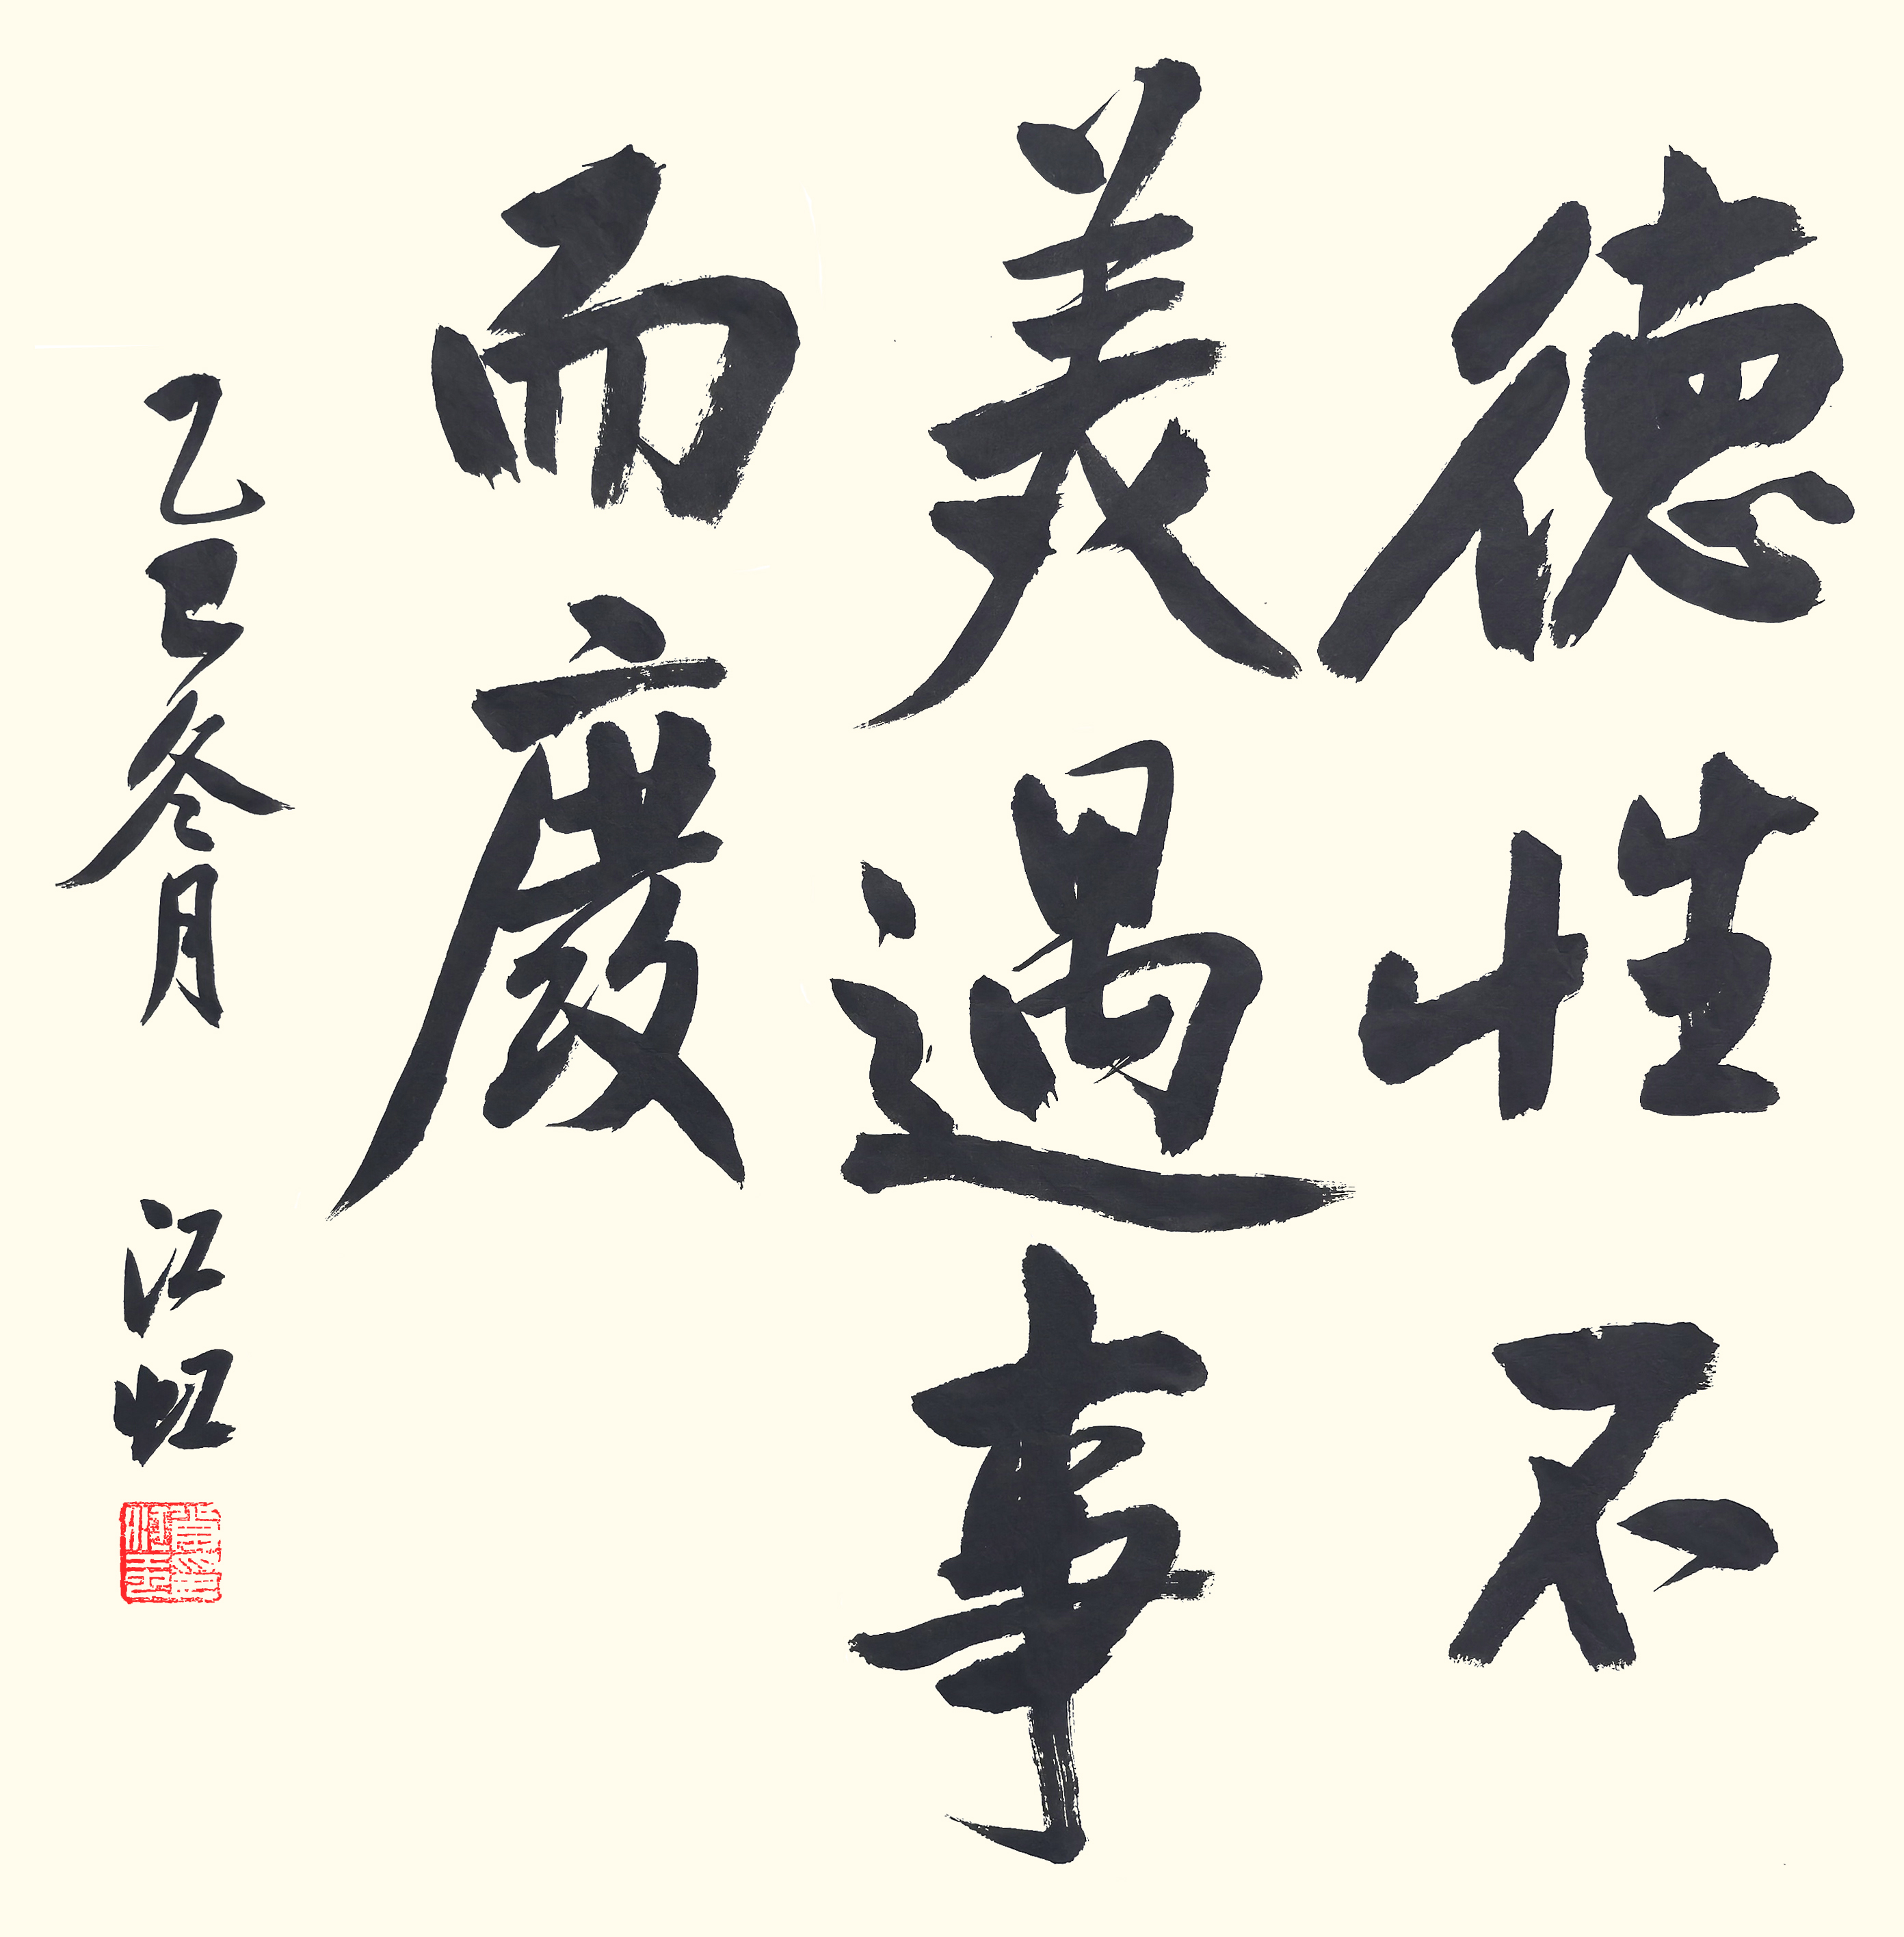 德性不
美遇事
而廢
乙巳冬月 江虹